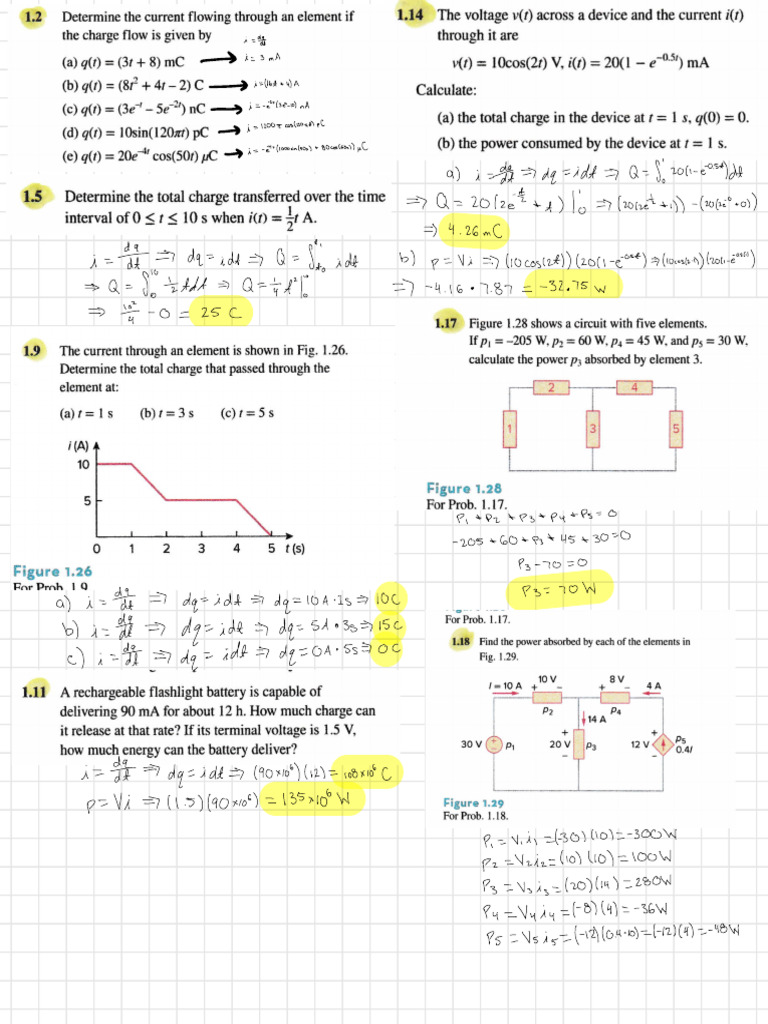 1.2 Determine the current flowing through an element if
the charge flow is given by
i = dq/dt
(a) q(t) = (3t + 8) mC → i = 3 mA
(b) q(t) = (8t² + 4t – 2) C → i = (16t + 4) A
(c) q(t) = (3e⁻ᵗ – 5e⁻²ᵗ) nC →
(d) q(t) = 10sin(120πt) pC →
(e) q(t) = 20e⁻⁴ᵗ cos(50t) μC →
1.5 Determine the total charge transferred over the time
interval of 0 ≤ t ≤ 10 s when i(t) = ½t A.
i = dq/dt ⇒ dq = idt ⇒ Q = ∫ idt
⇒ Q = ∫₀¹⁰ ½tdt ⇒ Q = ¼t²|₀¹⁰
⇒ 10²/4 - 0 = 25 C
1.9 The current through an element is shown in Fig. 1.26.
Determine the total charge that passed through the
element at:
(a) t = 1 s (b) t = 3 s (c) t = 5 s
i (A)
10
5
0 1 2 3 4 5 t (s)
Figure 1.26
For Prob. 1.9.
a) i = dq/dt ⇒ dq = idt ⇒ dq = 10A·1s ⇒ 10C
b) i = dq/dt ⇒ dq = idt ⇒ dq = 5A·3s ⇒ 15C
c) i = dq/dt ⇒ dq = idt ⇒ dq = 0A·5s ⇒ 0C
1.11 A rechargeable flashlight battery is capable of
delivering 90 mA for about 12 h. How much charge can
it release at that rate? If its terminal voltage is 1.5 V,
how much energy can the battery deliver?
i = dq/dt ⇒ dq = idt ⇒ (90×10⁶)(12) = 108×10⁶ C
p = Vi ⇒ (1.5)(90×10⁶) = 135×10⁶ W
1.14 The voltage v(t) across a device and the current i(t)
through it are
v(t) = 10cos(2t) V, i(t) = 20(1 – e⁻⁰·⁵ᵗ) mA
Calculate:
(a) the total charge in the device at t = 1 s, q(0) = 0.
(b) the power consumed by the device at t = 1 s.
a) i = dq/dt ⇒ dq = idt ⇒ Q = ∫₀¹ 20(1-e⁻⁰·⁵ᵗ)dt
⇒ 4.26 mC
b) p = Vi ⇒ (10cos(2t))(20(1-e⁻⁰·⁵ᵗ)) ⇒
⇒ -4.16 · 7.87 = -32.75 W
1.17 Figure 1.28 shows a circuit with five elements.
If p₁ = –205 W, p₂ = 60 W, p₄ = 45 W, and p₅ = 30 W,
calculate the power p₃ absorbed by element 3.
2 4
1 3 5
Figure 1.28
For Prob. 1.17.
P₁ + P₂ + P₃ + P₄ + P₅ = 0
-205 + 60 + P₃ + 45 + 30 = 0
P₃ - 70 = 0
P₃ = 70 W
For Prob. 1.17.
1.18 Find the power absorbed by each of the elements in
Fig. 1.29.
I = 10 A + 10 V – + 8 V – 4 A
P₂ P₄
14 A
30 V + – P₁ + 20 V – P₃ 12 V + – P₅ 0.4I
Figure 1.29
For Prob. 1.18.
P₁ = V₁i₁ = (-30)(10) = -300W
P₂ = V₂i₂ = (10)(10) = 100W
P₃ = V₃i₃ = (20)(14) = 280W
P₄ = V₄i₄ = (-8)(4) = -36W
P₅ = V₅i₅ = (-12)(0.4·10) = (-12)(4) = -48W